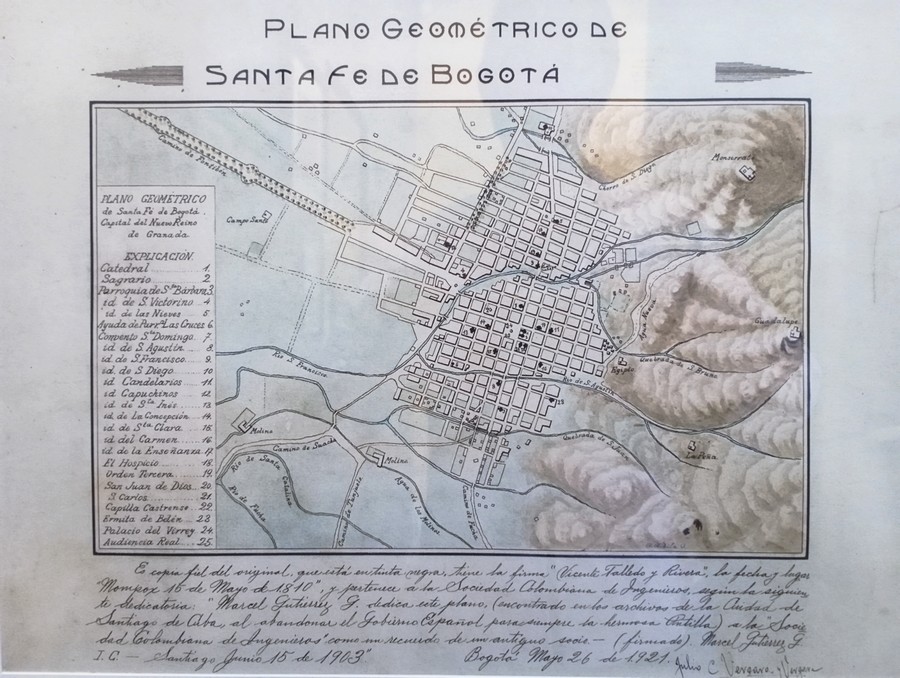 PLANO GEOMÉTRICO DE
SANTA FE DE BOGOTÁ
Camino de Fontibón
Monserrate
Chorro de S. Diego
Campo Santo
Guadalupe
Egipto
Quebrada de S. Bruno
Rio de S. Agustin
Rio S. Francisco
La Peña
Molino
Camino de Suacha
Molino
Rio de Santa Catalina
Rio de Fucha
Camino de Tunjuelo
Agua de los Molinos
Camino de Fucha
PLANO GEOMÉTRICO
de Santa Fé de Bogotá.
Capital del Nuevo Reino
de Granada
EXPLICACION.
Catedral 1.
Sagrario 2
Parroquia de Sta Bárbara 3.
id de S. Victorino 4
id de las Nieves 5
Ayuda de Parra Las Cruces 6.
Convento Sto Domingo. 7
id de S. Agustin 8.
id de S. Francisco 9.
id de S. Diego 10
id Candelarios 11.
id Capuchinos 12.
id de Sta Inés 13.
id de La Concepción 14.
id de Sta Clara. 15.
id del Carmen 16.
id de la Enseñanza 17.
El Hospicio 18.
Orden Tercera 19.
San Juan de Dios. 20.
S. Carlos 21.
Capilla Castrense 22.
Ermita de Belén 23.
Palacio del Virrey 24.
Audiencia Real 25.
Es copia fiel del original, que está en tinta negra, tiene la firma "Vicente Talledo y Rivera", la fecha y lugar
"Mompox 15 de Mayo de 1810", y pertenece á la Sociedad Colombiana de Ingenieros, según la siguien
te dedicatoria: "Marcel Gutierrez G. dedica este plano, (encontrado en los archivos de la Ciudad de
Santiago de Cuba, al abandonar el Gobierno Español para siempre la hermosa Antilla) a la "Socie
dad Colombiana de Ingenieros" como un recuerdo de un antiguo socio — (firmado). Marcel Gutierrez G.
I. C. — Santiago Junio 15 de 1903" Bogotá Mayo 26 de 1921.
Julio C. Vergara y Vergara